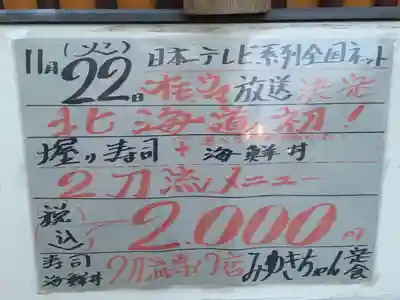 11月22日(火) 日本テレビ系列全国ネット
放送決定
北海道初!
握り寿司+海鮮丼
2刀流メニュー
税込 2.000円
寿司 海鮮丼 2刀流 店 みゆきちゃん定食